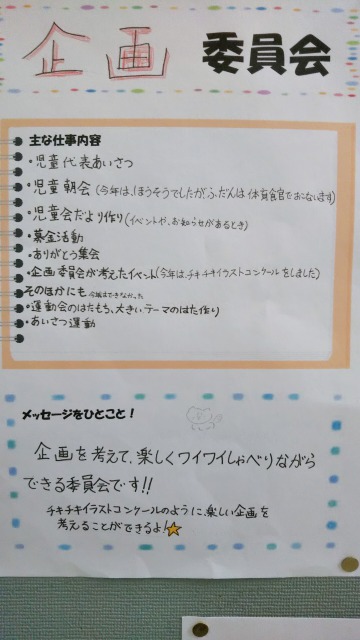 企画 委員会
主な仕事内容
・児童代表あいさつ
・児童朝会(今年は、ほうそうでしたが、ふだんは体育館でおこないます)
・児童会だより作り(イベントや、お知らせがあるとき)
・募金活動
・ありがとう集会
・企画委員会が考えたイベント(今年は、チキチキイラストコンクールをしました)
そのほかにも 今年はできなかった
・運動会のはたもち、大きいテーマのはた作り
・あいさつ運動
メッセージをひとこと!
企画を考えて、楽しくワイワイしゃべりながら
できる委員会です!!
チキチキイラストコンクールのように、楽しい企画を
考えることができるよ!